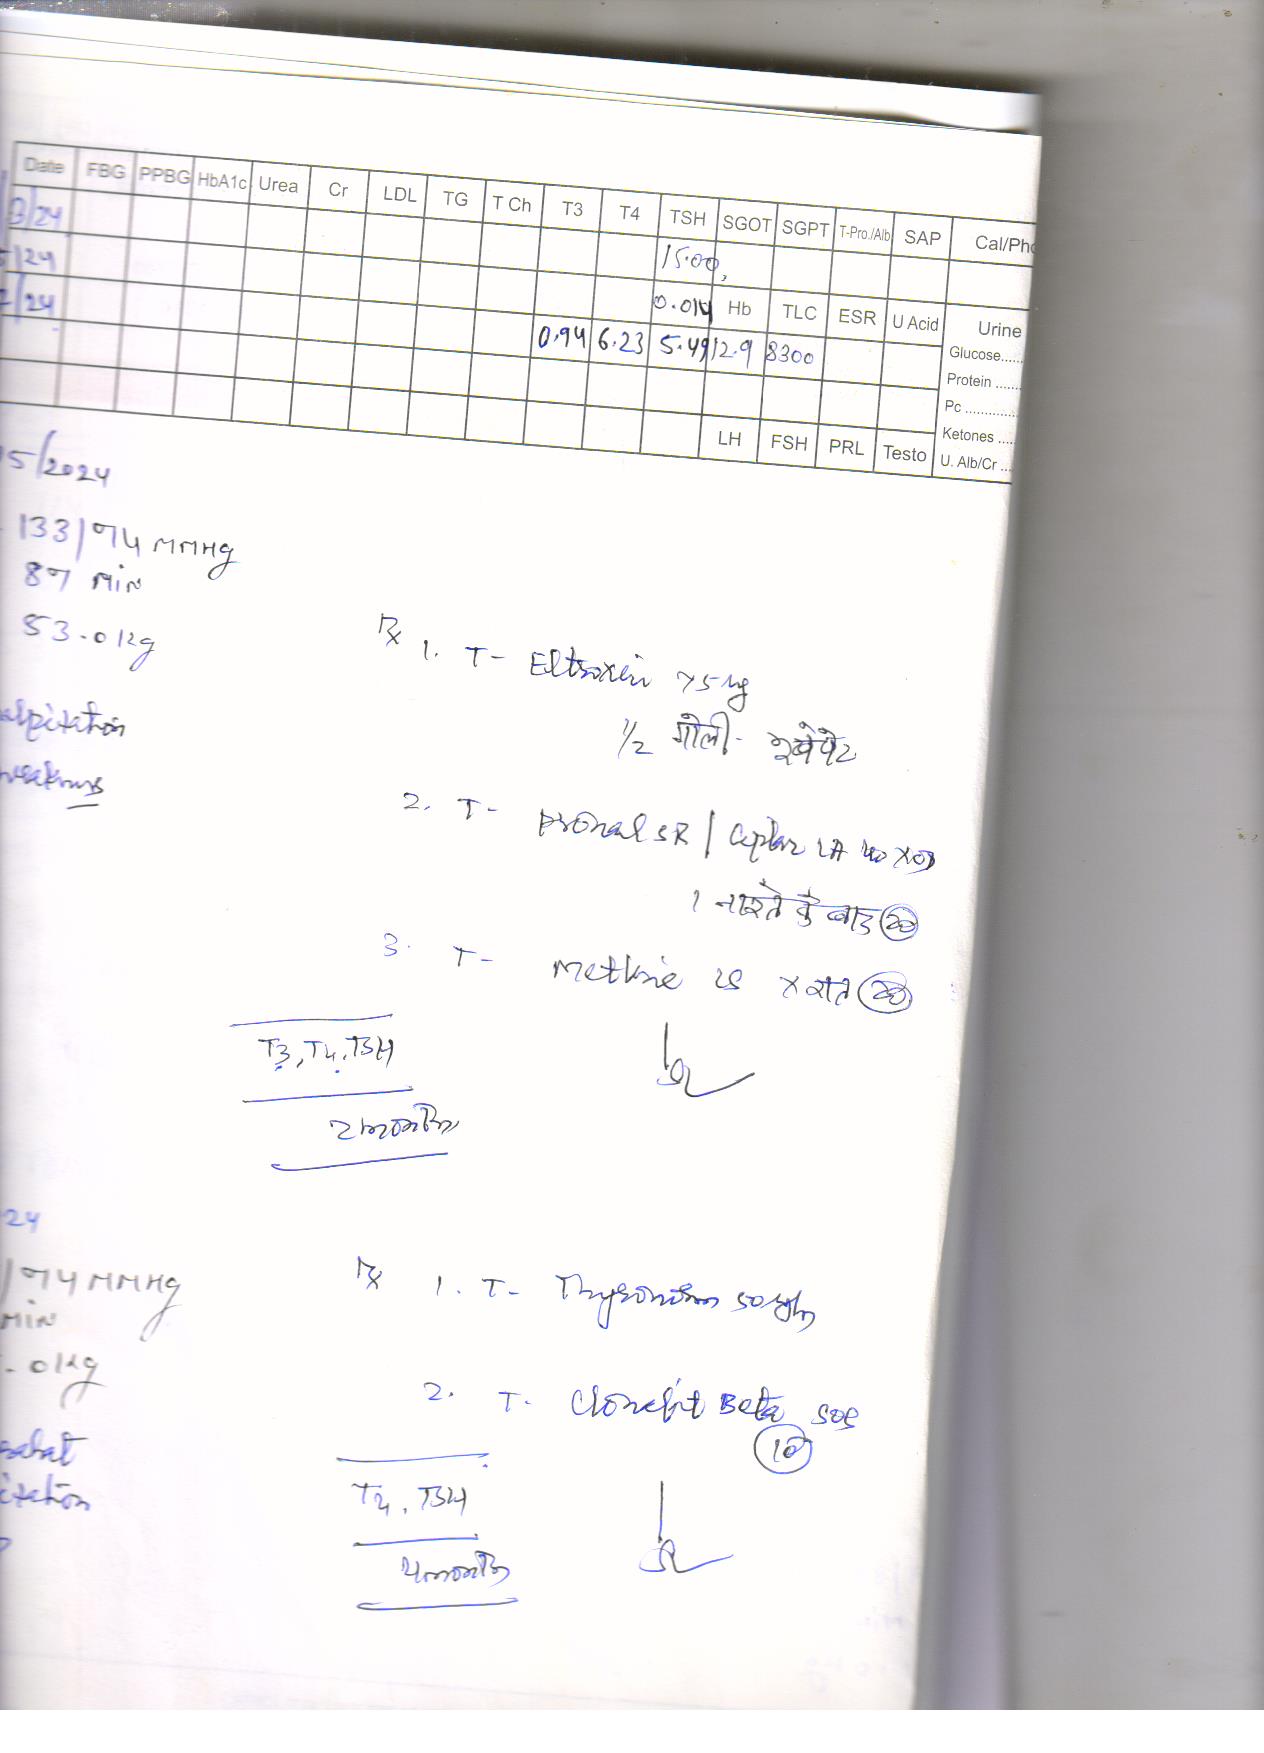 Date FBG PPBG HbA1c Urea Cr LDL TG T Ch T3 T4 TSH SGOT SGPT T-Pro./Alb SAP Cal/Pho
3/24 15.00
5/24 0.014 Hb TLC ESR U Acid Urine
7/24 0.94 6.23 5.49 12.9 8300 Glucose......
Protein .......
Pc ..............
LH FSH PRL Testo Ketones ....
U. Alb/Cr ...
05/2024
133/74 MMHg
87 MIN
53.0 Kg
alpitation
weakness
Rx 1. T- Eltroxin 75 µg
1/2 गोली -
2. T- SR / Ciplar LA 40 X OD
1 नाश्ते के बाद 20
3. T- X रात 20
T3, T4, TSH
2 months
24
/74 MMHg
MIN
.0 Kg
itation
Rx 1. T- Thyronorm 50 µg
2. T- Clonafit Beta SOS
10
T4, TSH
4 months